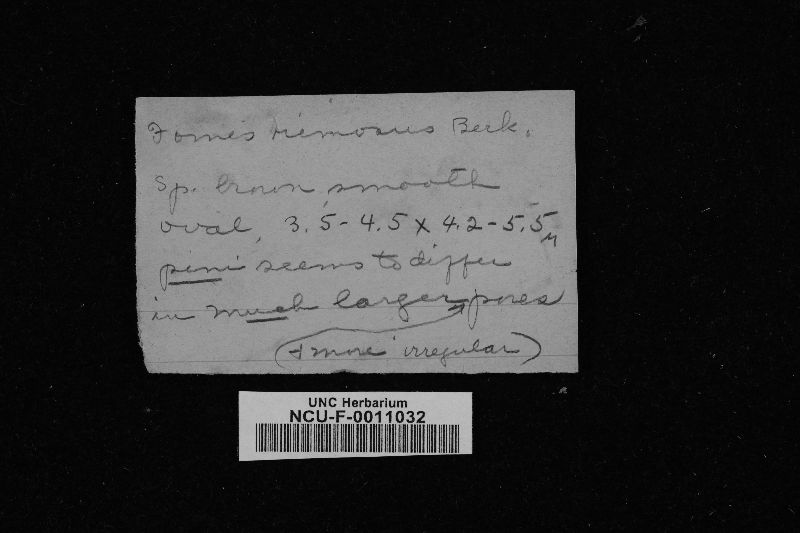 Fomes rimosus Berk.
Sp. brown, smooth
oval, 3.5-4.5 x 4.2-5.5 µ
pini seems to differ
in much larger pores
(+ more irregular)
UNC Herbarium
NCU-F-0011032